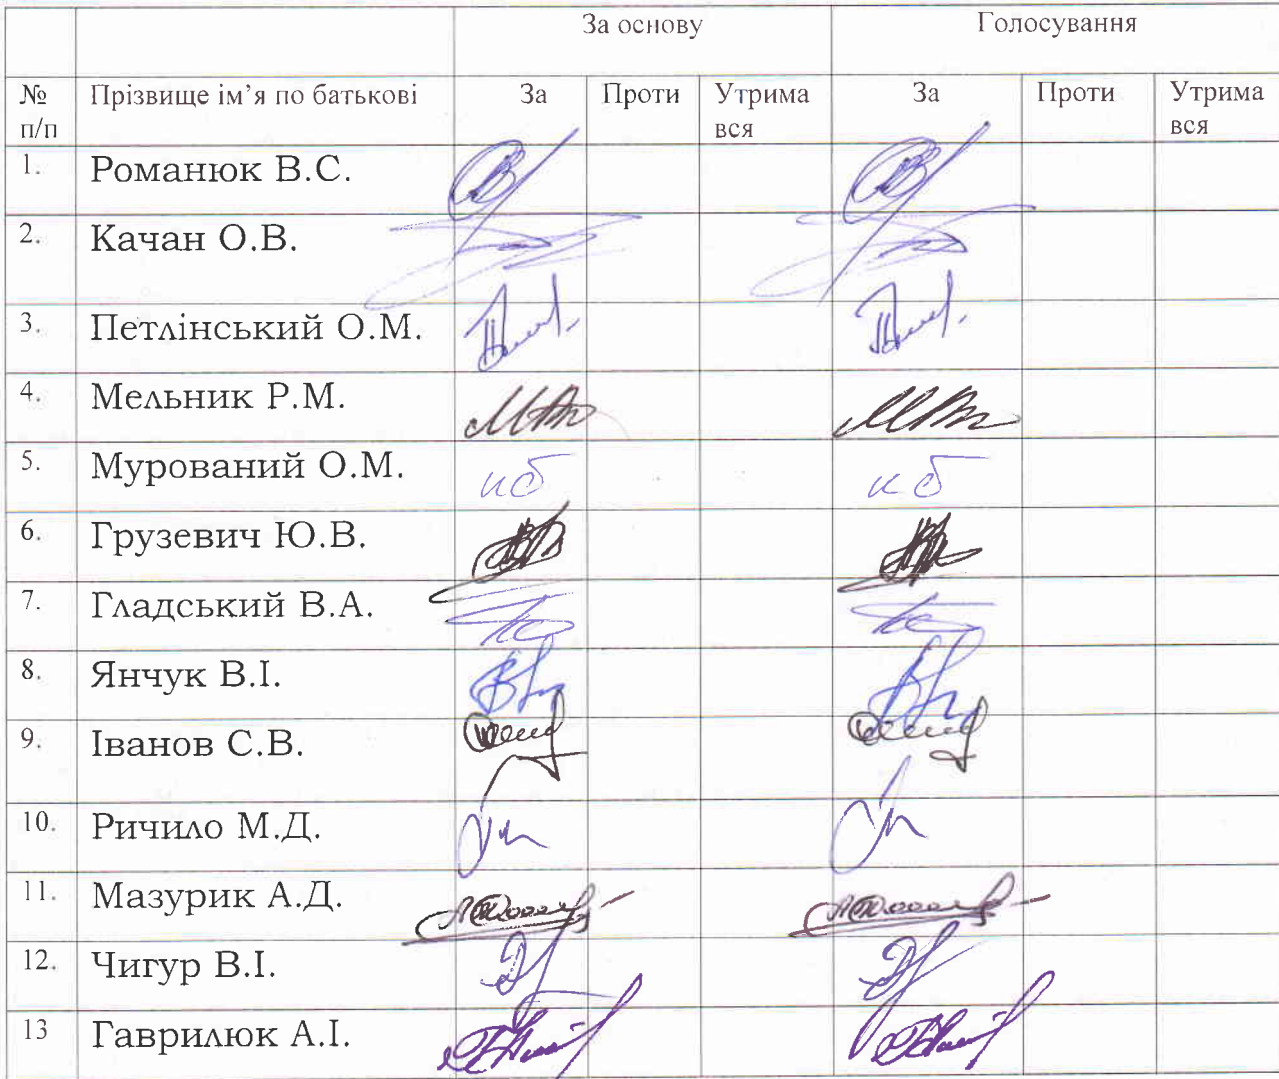 За основу Голосування
№ Прізвище ім’я по батькові За Проти Утрима За Проти Утрима
п/п вся вся
1. Романюк В.С.
2. Качан О.В.
3. Петлінський О.М.
4. Мельник Р.М.
5. Мурований О.М. нб нб
6. Грузевич Ю.В.
7. Гладський В.А.
8. Янчук В.І.
9. Іванов С.В.
10. Ричило М.Д.
11. Мазурик А.Д.
12. Чигур В.І.
13 Гаврилюк А.І.